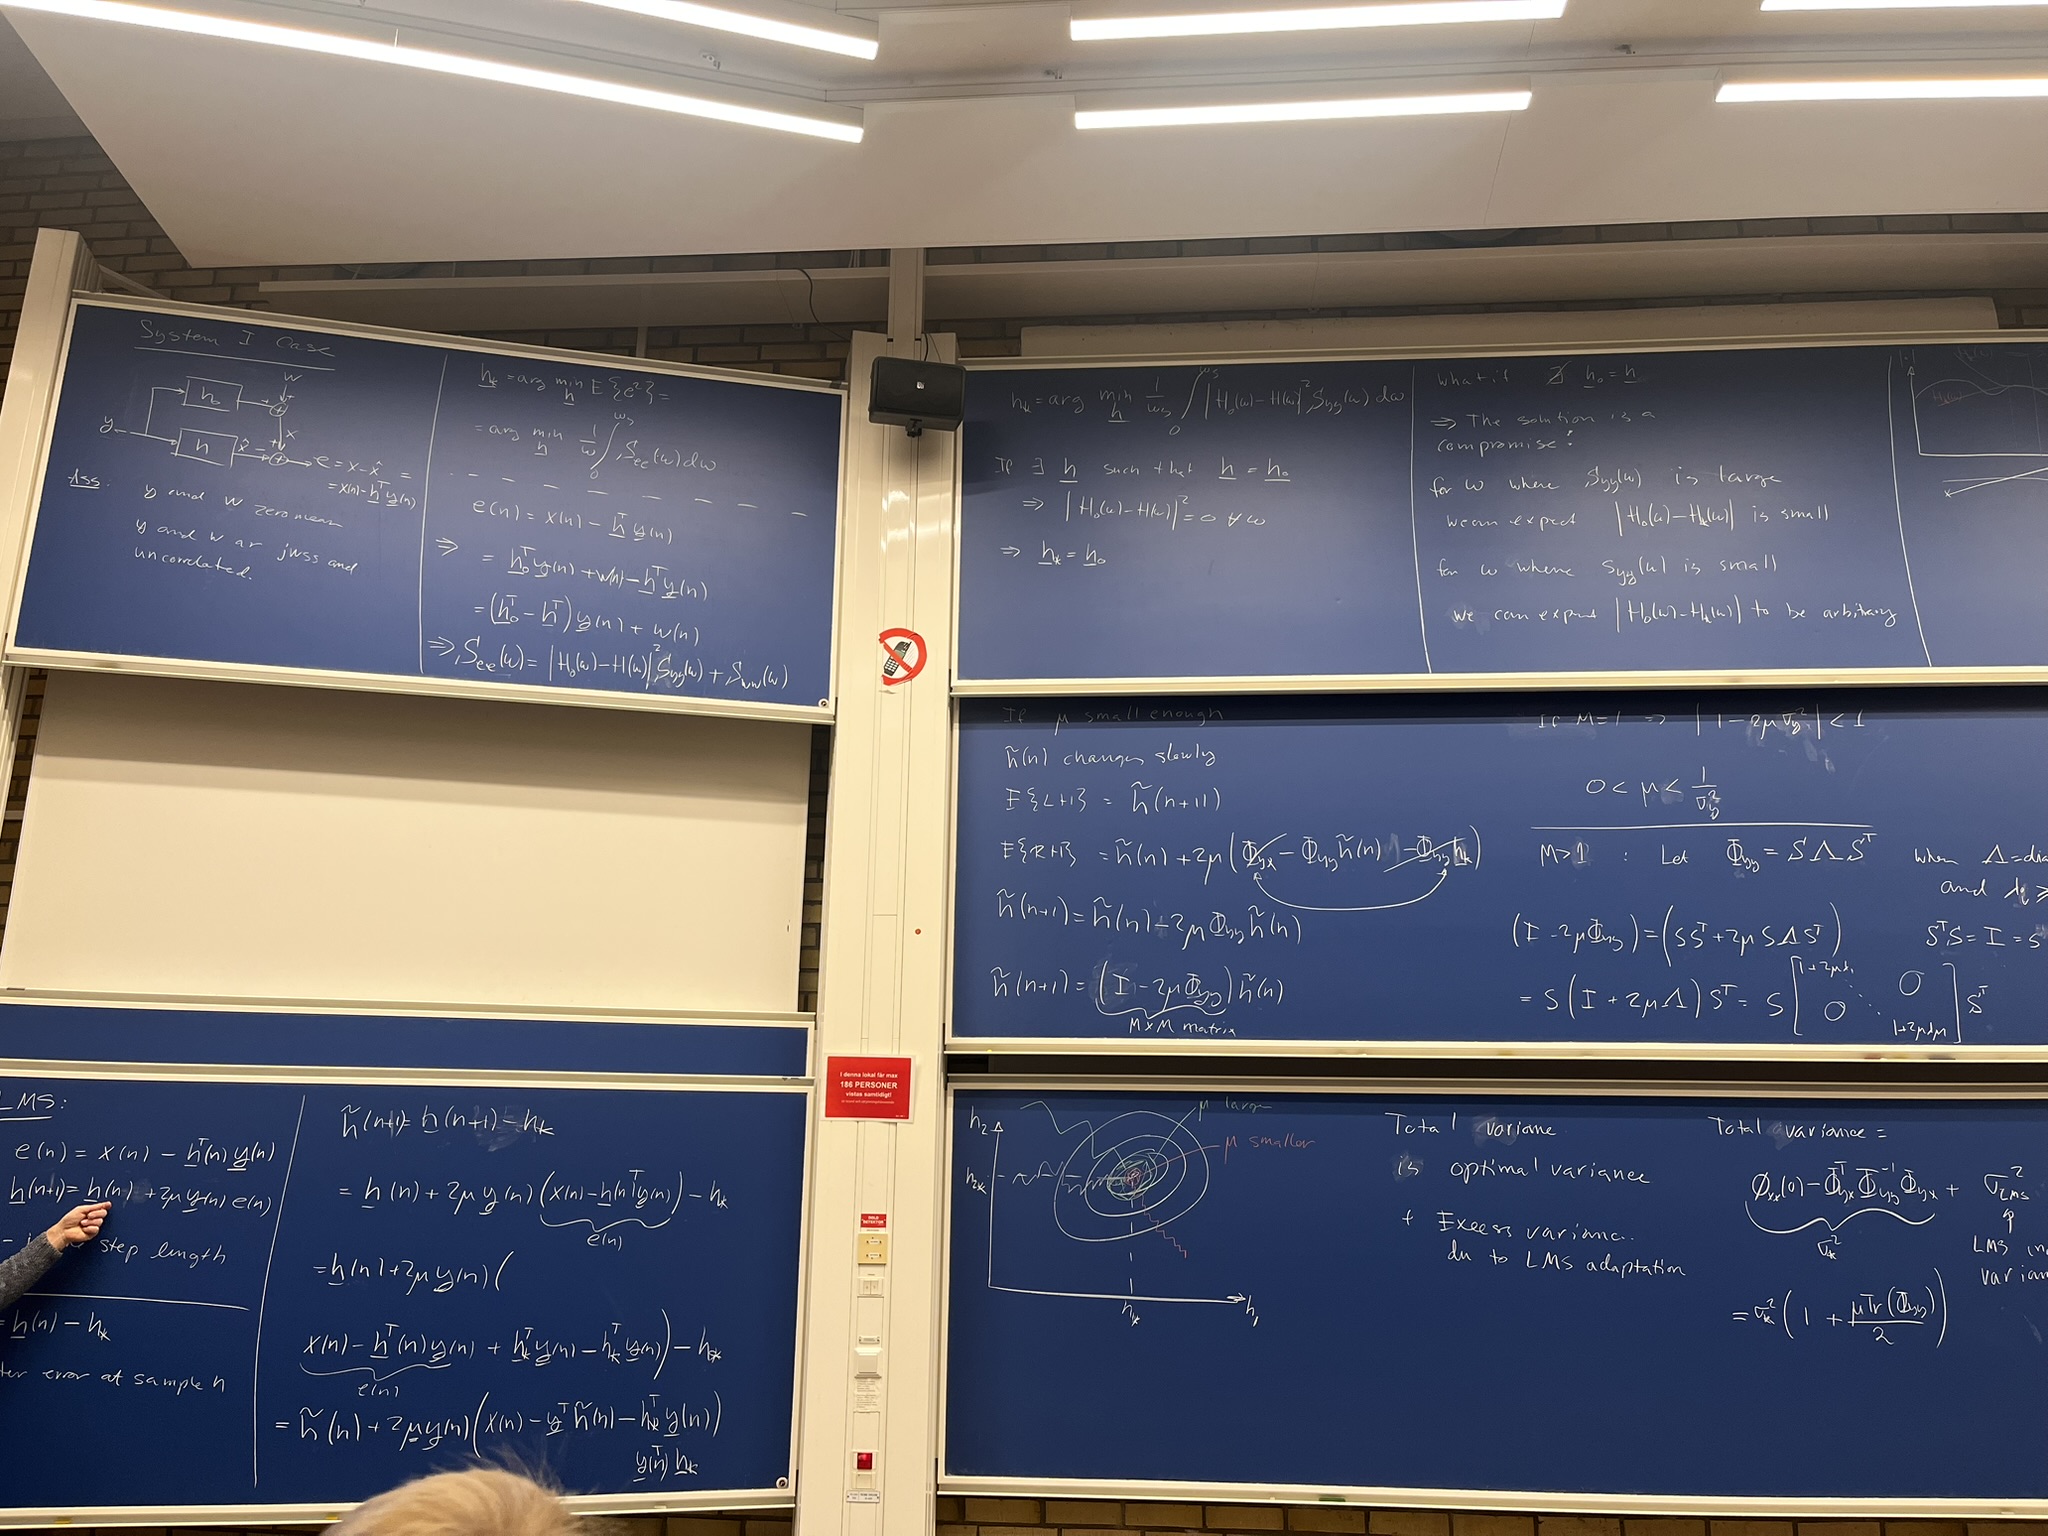 System I Case
h₀
w
+
+
y
h
x
x̂ -
+
e = x - x̂ =
= x(n) - h^T y(n)
Ass:
y and w zero mean
y and w ar jwss and
uncorrelated.
h* = arg min_h E{e²} =
= arg min_h 1/ω ∫₀^{ωs} See(ω)dω
e(n) = x(n) - h^T y(n)
⇒ = h₀^T y(n) + w(n) - h^T y(n)
= (h₀^T - h^T) y(n) + w(n)
⇒ See(ω) = |H₀(ω) - H(ω)|² Syy(ω) + Sww(ω)
h* = arg min_h 1/ωs ∫₀^{ωs} |H₀(ω) - H(ω)|² Syy(ω) dω
If ∃ h such that h = h₀
⇒ |H₀(ω) - H(ω)|² = 0 ∀ω
⇒ h* = h₀
What if ∄ h₀ = h
⇒ The solution is a
compromise!
for ω where Syy(ω) is large
we can expect |H₀(ω) - H*(ω)| is small
for ω where Syy(ω) is small
we can expect |H₀(ω) - H*(ω)| to be arbitrary
I denna lokal får max
186 PERSONER
vistas samtidigt!
If μ small enough
h̃(n) changes slowly
E{LH} = h̃(n+1)
E{RH} = h̃(n) + 2μ(Φyx - Φyy h̃(n) - Φyy h*)
h̃(n+1) = h̃(n) - 2μ Φyy h̃(n)
h̃(n+1) = (I - 2μ Φyy) h̃(n)
M×M matrix
If M=1 ⇒ |1 - 2μ σy²| < 1
0 < μ < 1/σy²
M>1 : Let Φyy = S Λ S^T
when Λ = dia
and λi ≥
(I - 2μΦyy) = (SS^T + 2μ SΛS^T)
S^T S = I = S
= S(I + 2μΛ)S^T = S [1+2μλ₁ 0
0 1+2μλM] S^T
LMS:
e(n) = x(n) - h^T(n) y(n)
h(n+1) = h(n) + 2μ y(n) e(n)
step length
= h(n) - h*
ter error at sample n
h̃(n+1) = h(n+1) - h*
= h(n) + 2μ y(n) (x(n) - h(n)^T y(n)) - h*
e(n)
= h(n) + 2μ y(n) (
x(n) - h^T(n) y(n) + h*^T y(n) - h*^T y(n)) - h*
e(n)
= h̃(n) + 2μ y(n) (x(n) - y^T h̃(n) - h*^T y(n))
y^T(n) h*
h₂
μ larger
μ smaller
h₂*
h*
h₁
Total variance
is optimal variance
+ Excess variance
du to LMS adaptation
Total variance =
φxx(0) - Φyx^T Φyy^-1 Φyx + σ²LMS
σ*²
LMS in
varian
= σ*² (1 + μTr(Φyy)/2)